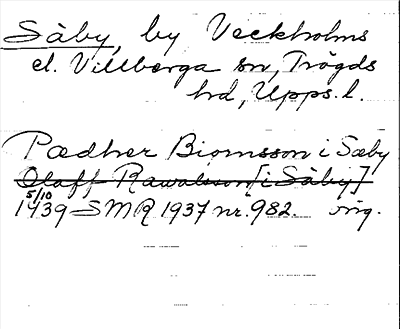 Säby, by Veckholms
el. Villberga sn, Trögds
hd, Upps. l.
Pædher Biornsson i Sæby
Olaff Rawalsson [i Säby]
5/10
1439 SMR 1937 nr. 982. orig.